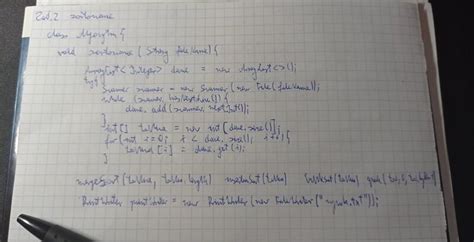 Zad. 2 sortowanie
class Algorytm {
void sortowanie (String fileName) {
ArrayList<Integer> dane = new ArrayList<>();
try {
Scanner scanner = new Scanner (new File (fileName));
while (scanner.hasNextLine()) {
dane.add(scanner.nextInt());
}
int[] tablica = new int [dane.size()];
for (int i=0; i < dane.size(); i++) {
tablica[i] = dane.get(i);
}
mergeSort (tablica,
PrintWriter printWriter = new PrintWriter (new FileWriter ("wynik.txt"));